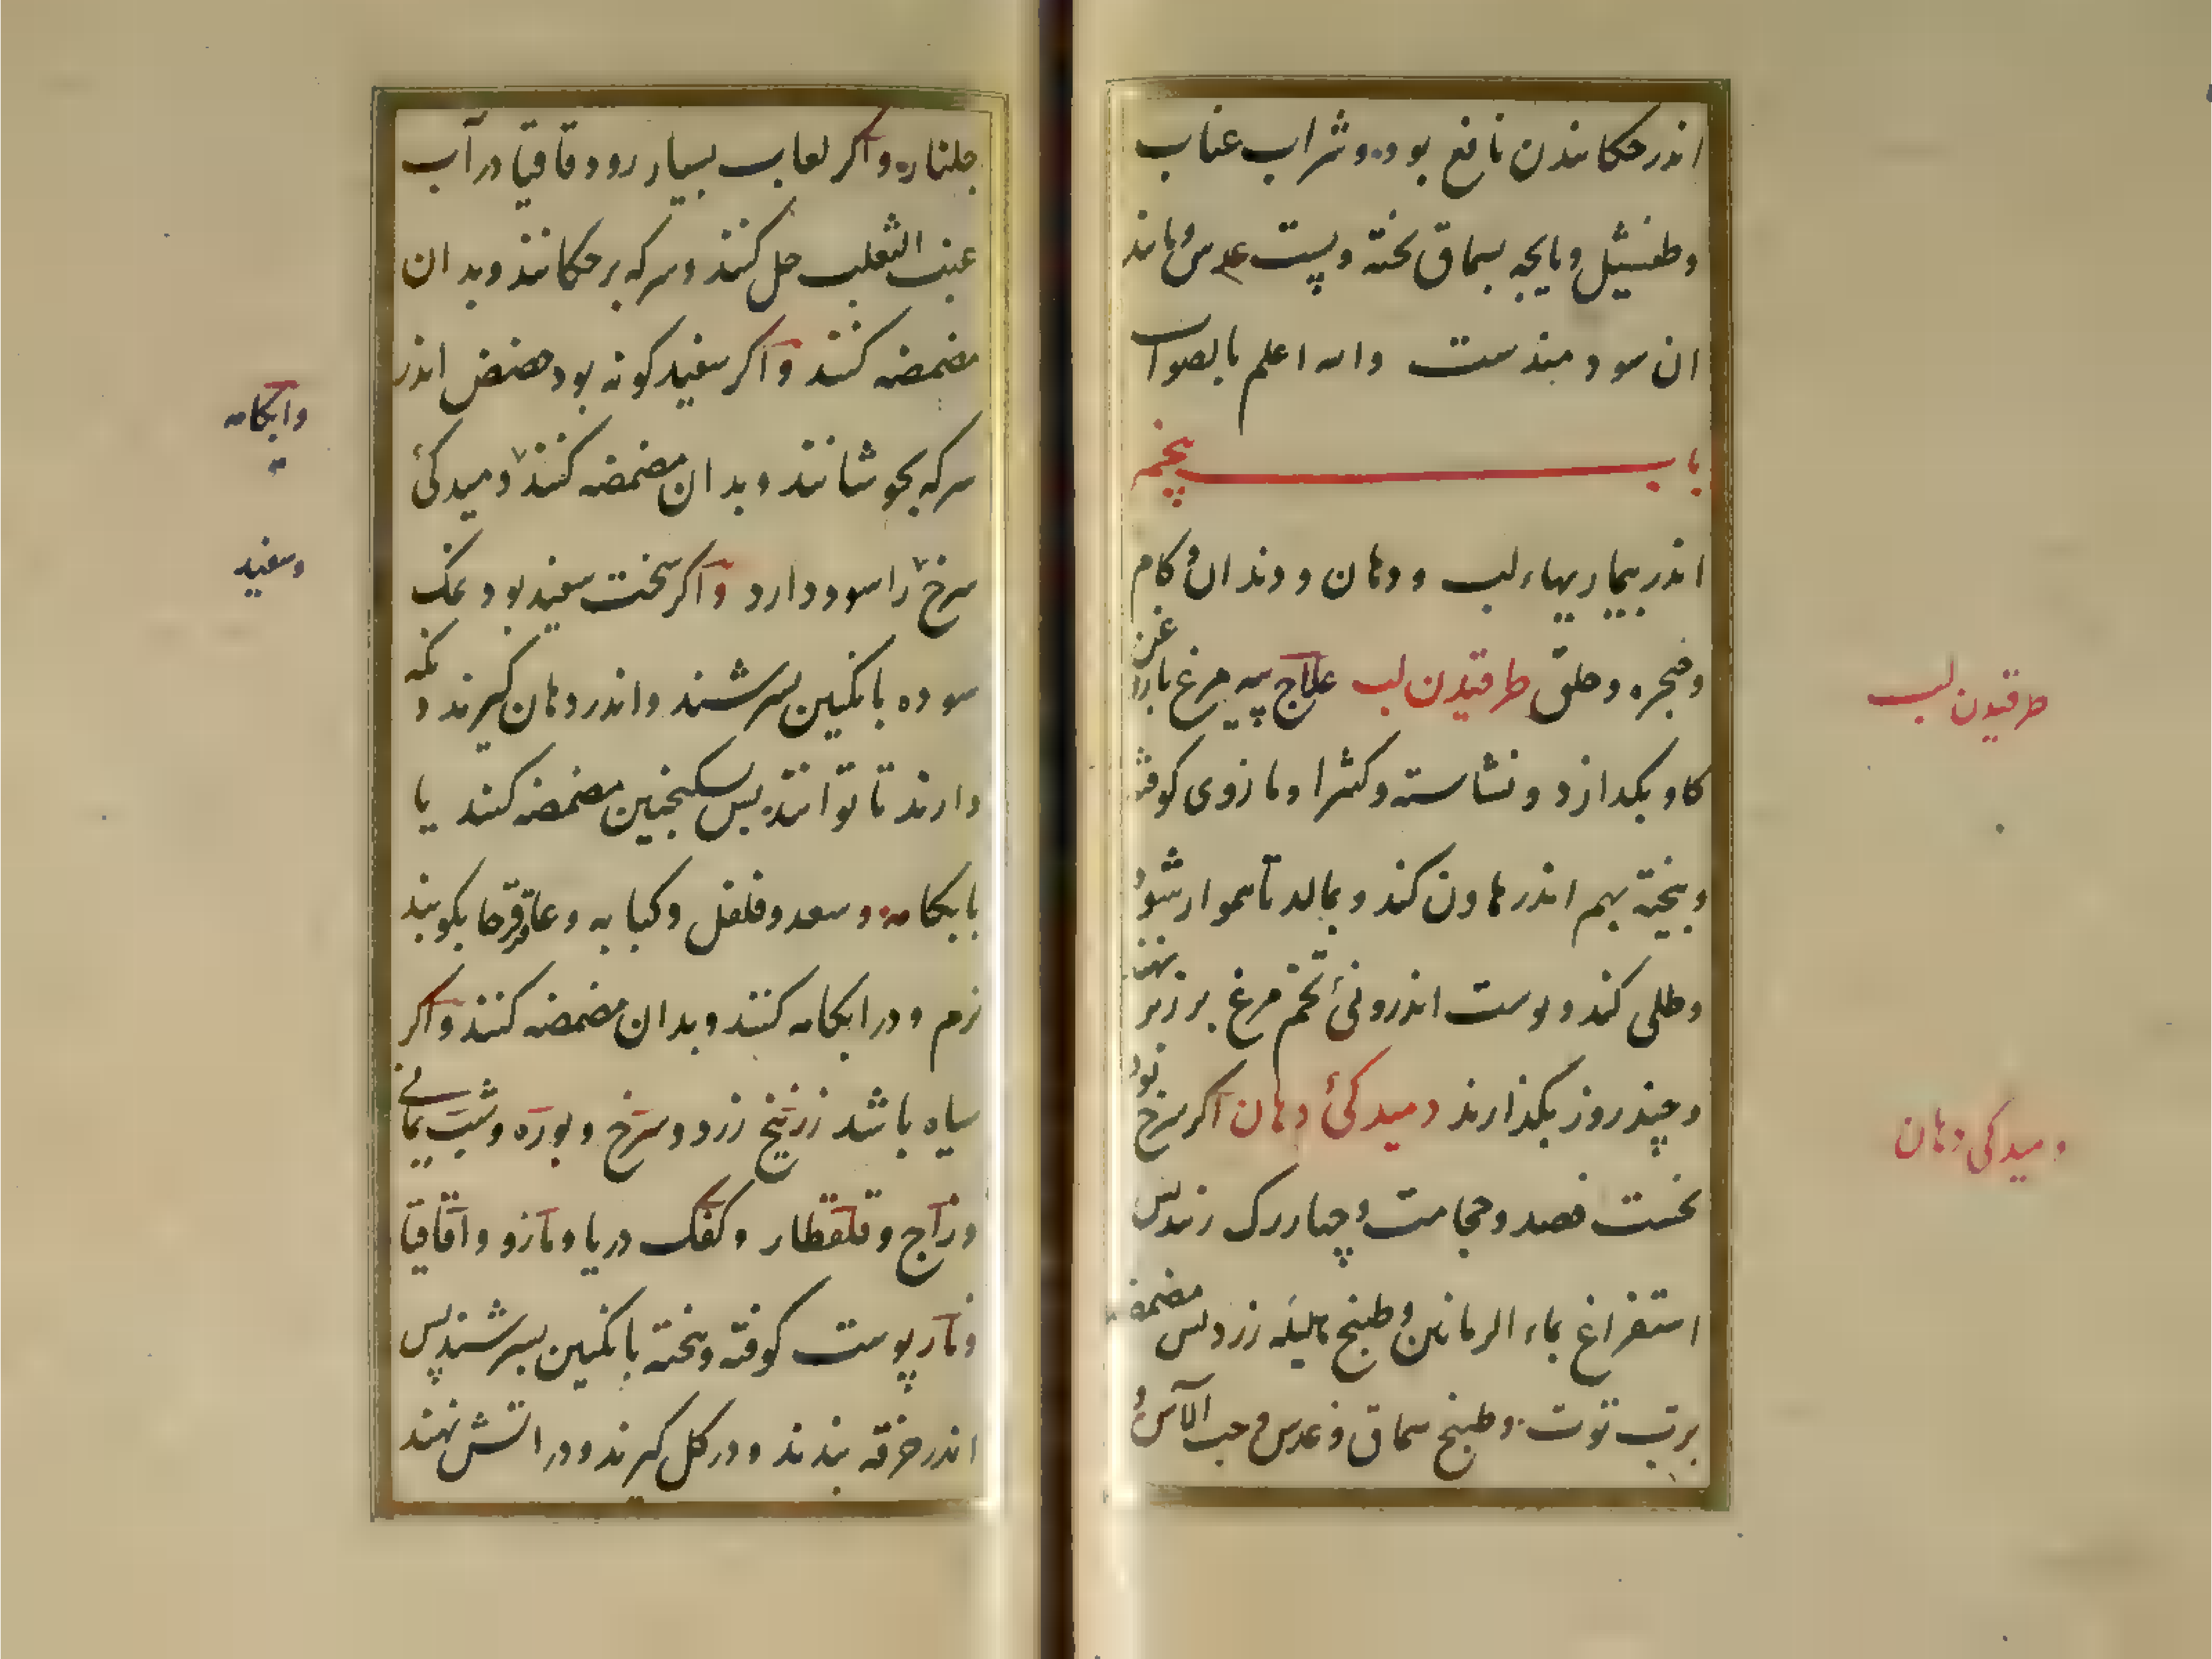 اندر چکانیدن نافع بود و شراب عناب
و طفشیل و بایجه بسماق پخته و پست عدس و مانند
ان سودمندست والله اعلم بالصواب
باب پنجم
اندر بیماریهاء لب و دهان و دندان و کام
و حنجره و حلق طرقیدن لب علاج پیه مرغ یا از آن مغز
کاو بکدازد و نشاسته و کثیرا و مازوی کوفته
و بیخته بهم اندر هاون کند و بمالد تا هموار شود
و طلی کند و پوست اندرونیٔ تخم مرغ بر زبر نهند
و چند روز بکذارند دمیدکیٔ دهان اکر سرخ بود
نخست فصد و حجامت و چهاررک زند پس
استفراغ بماء الرمانین و طبیخ هلیله زرد پس مضمضه
برب توت و طبیخ سماق و عدس و حب الآس و
طرقیدن لب
دمیدکی دهان
جلنار و اکر لعاب بسیار رود قاقیا در آب
عنب الثعلب حل کنند و سرکه برچکانند و بدان
مضمضه کنند و اکر سفیدکونه بود حضض اندر
سرکه بجوشانند و بدان مضمضه کنند و میدکیٔ
سرخ را سود دارد و اکر سخت سفید بود نمک
سوده بانکبین بسرشند و اندر دهان کیرند و نکه
دارند تا توانند پس بسکنجبین مضمضه کنند یا
بابکامه و سعد و فلفل و کبابه و عاقرقرحا بکوبند
نرم و در ابکامه کنند و بدان مضمضه کنند و اکر
سیاه باشد زرنیخ زرد و سرخ و بوره و شب یمانی
و زاج و قلقطار و کفک دریا و مازو و اقاقیا
و نارپوست کوفته و بیخته بانکبین بسرشند پس
اندر خرقه بندند و در کل کیرند و در اتش نهند
وابکامه
وسفید